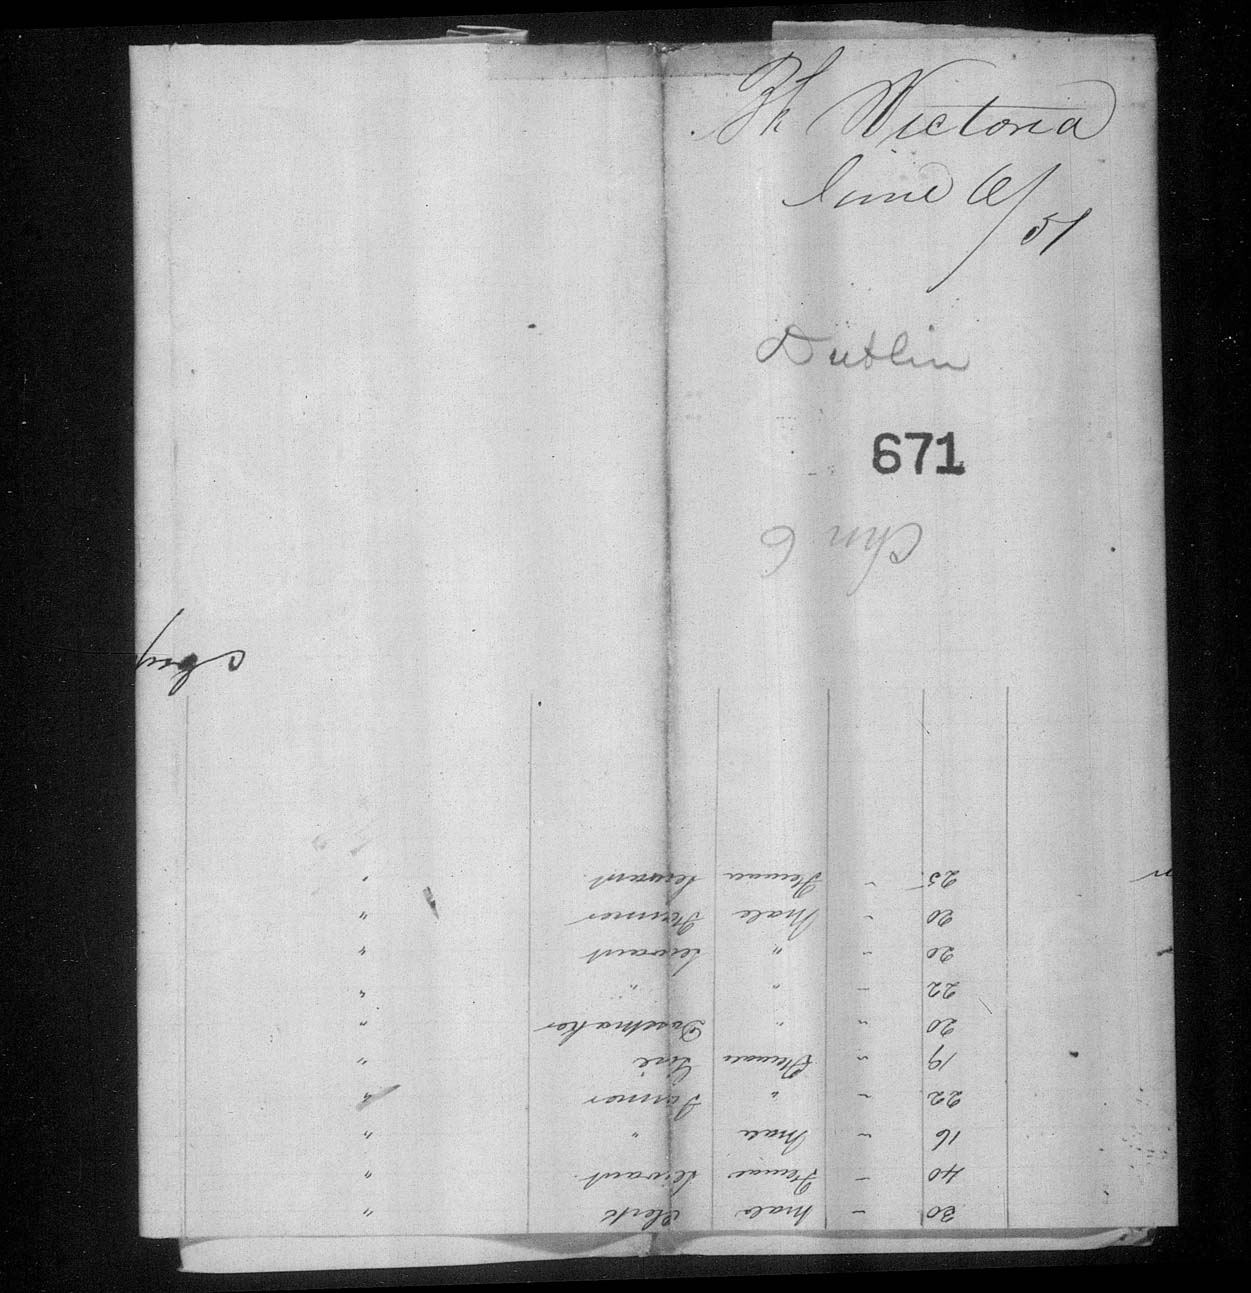 Victoria
June 6/51
Dublin
671
Chn 6
30 - Male Clerk "
40 - Female Servant "
16 " Male " "
22 " " Farmer "
19 " Female Girl "
20 " " Dressmaker "
22 - " " "
20 - " Servant "
20 - Male Farmer "
25 - Female Servant "